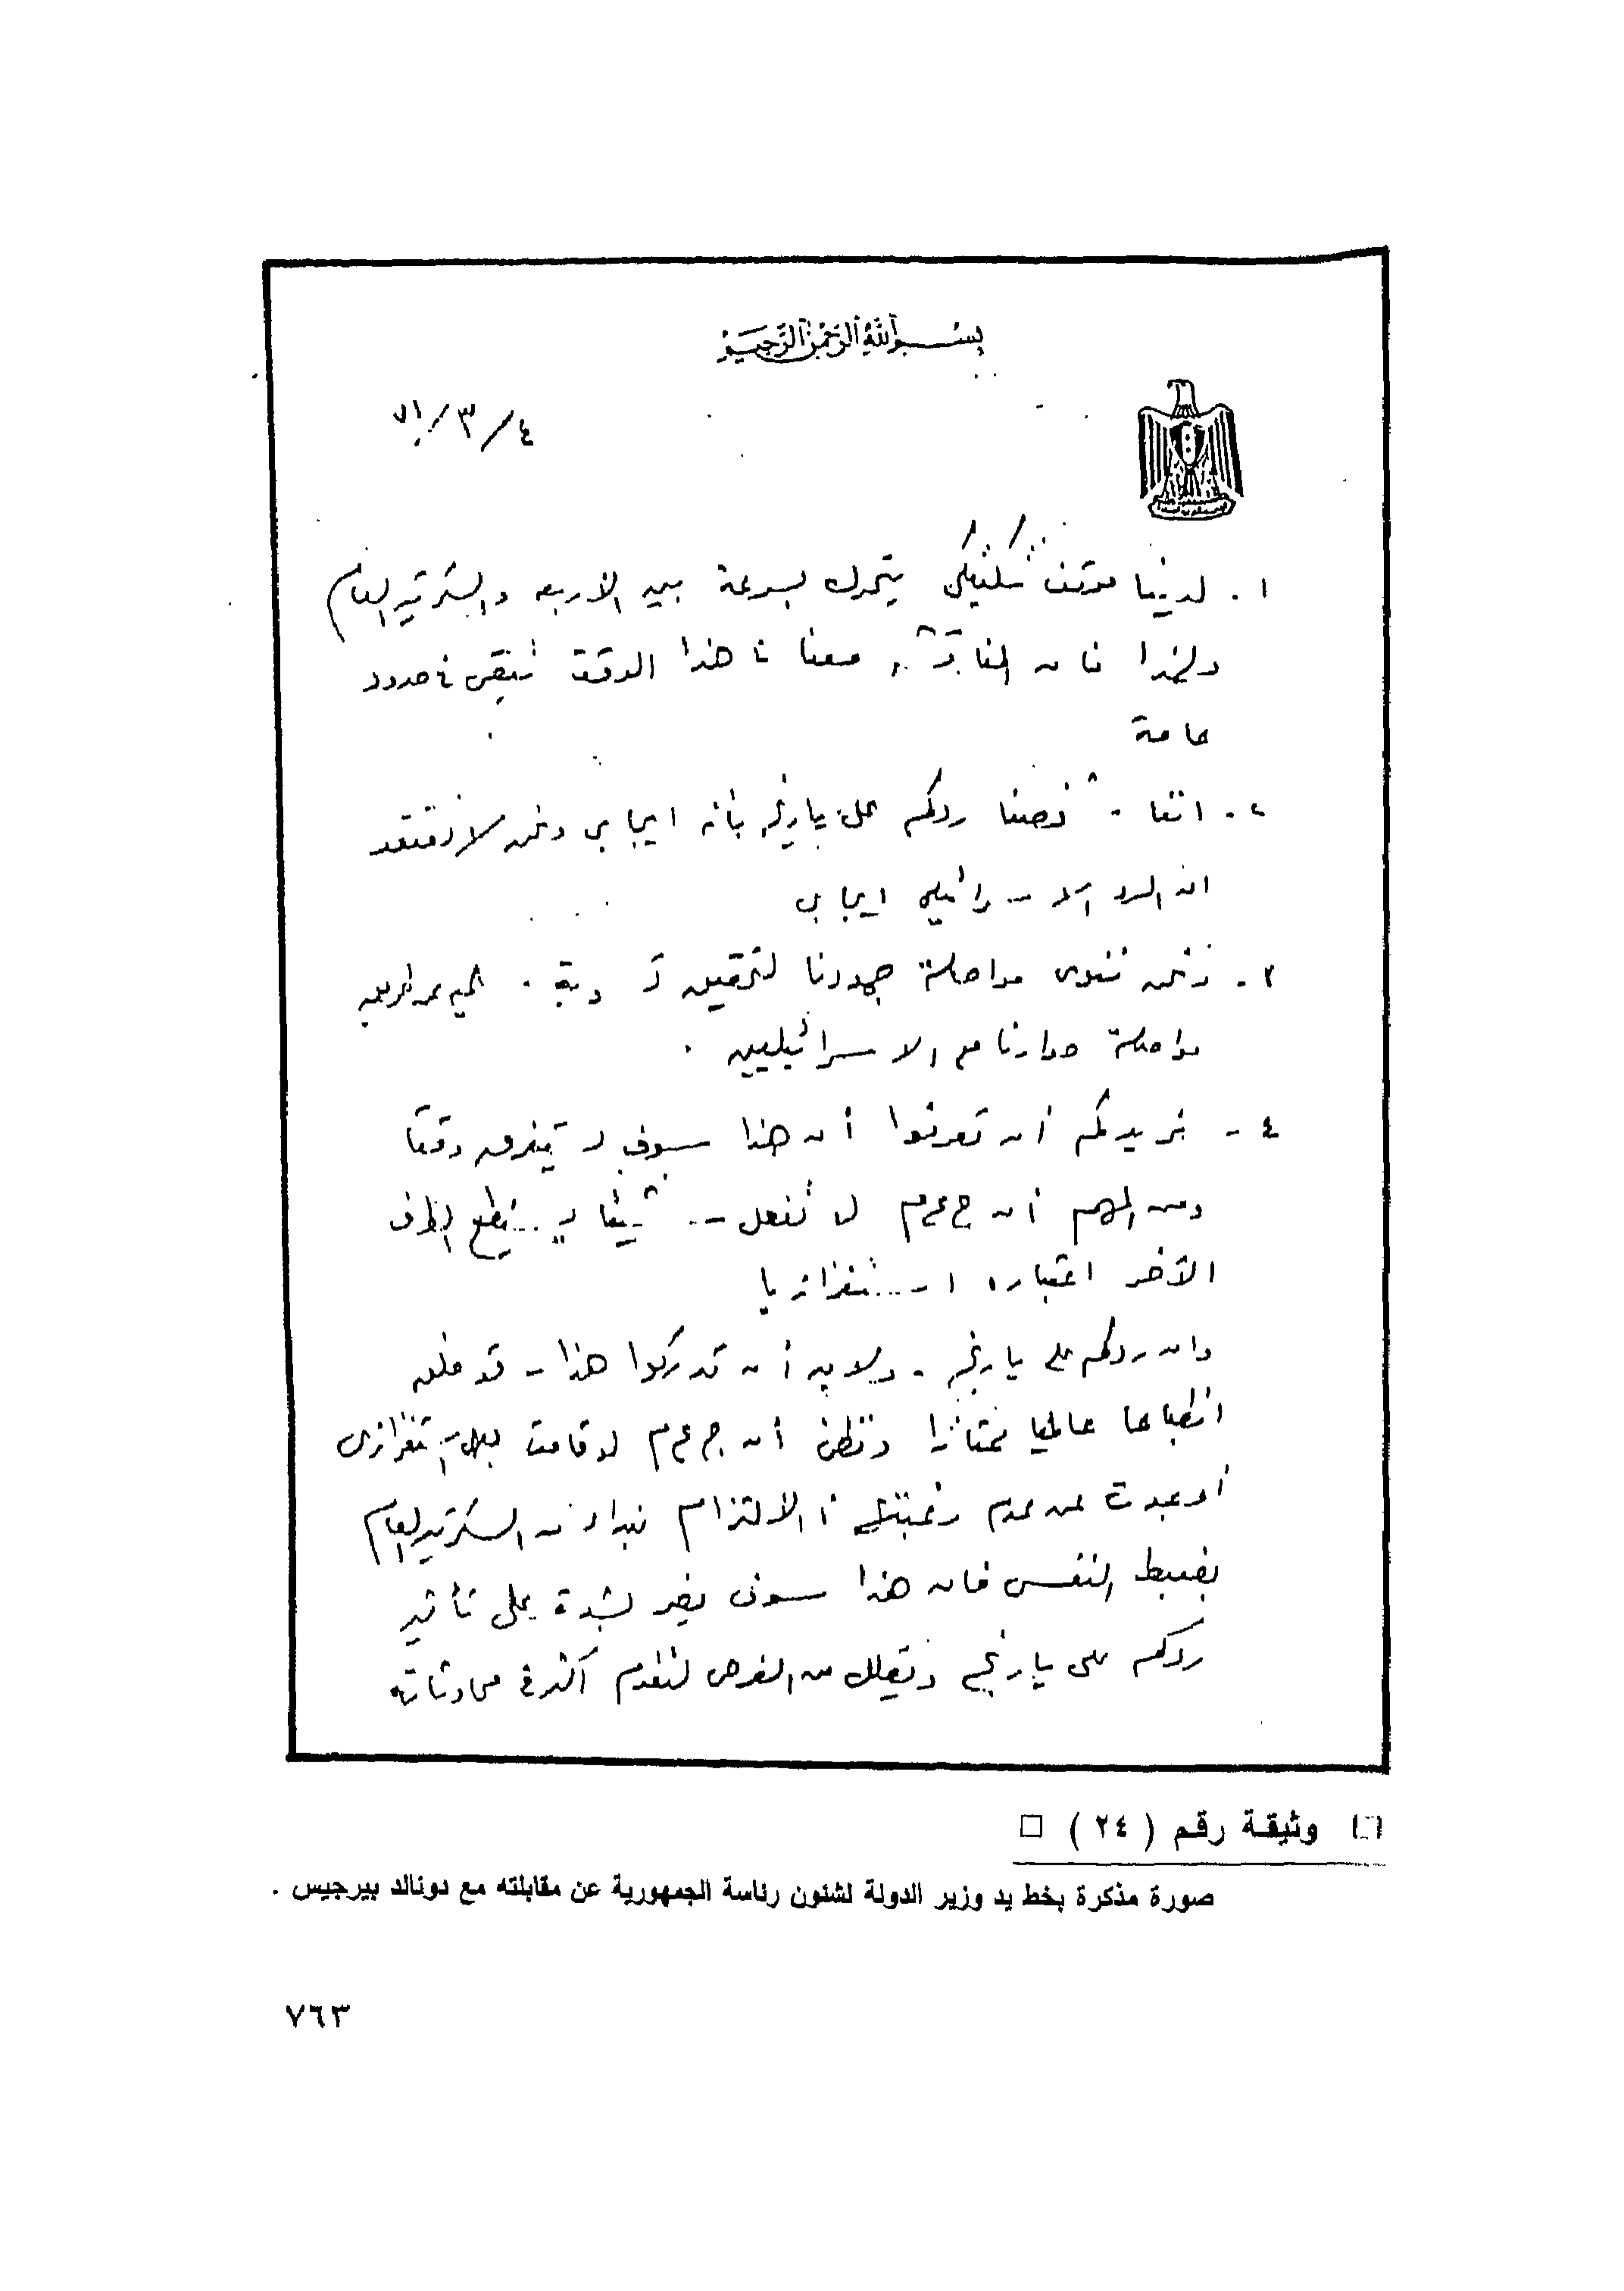 بسم الله الرحمن الرحيم
٤/٣/٧١
١ - لدينا موقف تكتيكى يتحرك بسرعة بين الاربعه والسكرتير العام
ولهذا فان المناقشة معنا فى هذا الوقت تبقى فى حدود
عامة
٢ - اننا ردكم على يارنج بأنه ايجابى ونحن لا نعتقد
ان الرد الاسرائيلى ايجابى
٣ - ونحن ننوى مواصلة جهودنا لتحقيق
مواصلة حوارنا مع الاسرائيليين .
٤ - نريدكم أن تعرفوا أن هذا سوف يستغرق وقتا
ومن المهم أن ج ع م لا تفعل شيئا يستطيع الطرف
الآخر اعتباره استفزازيا
وان ردكم على يارنج - ولابد أن تدركوا هذا - قد خلق
انطباعا عالميا ممتازا ونظن أن ج ع م لو قامت بعمل استفزازى
أو عبرت عن عدم رغبتها فى الالتزام بنداء من السكرتير العام
بضبط النفس فان هذا سوف يضر بشدة على تأثير
ردكم على يارنج ويقلل من الفرص لتقدم أكثر فى محادثاته
□ وثيقة رقم ( ٢٤ ) □
صورة مذكرة بخط يد وزير الدولة لشئون رئاسة الجمهورية عن مقابلته مع دونالد بيرجيس .
٧٦٣